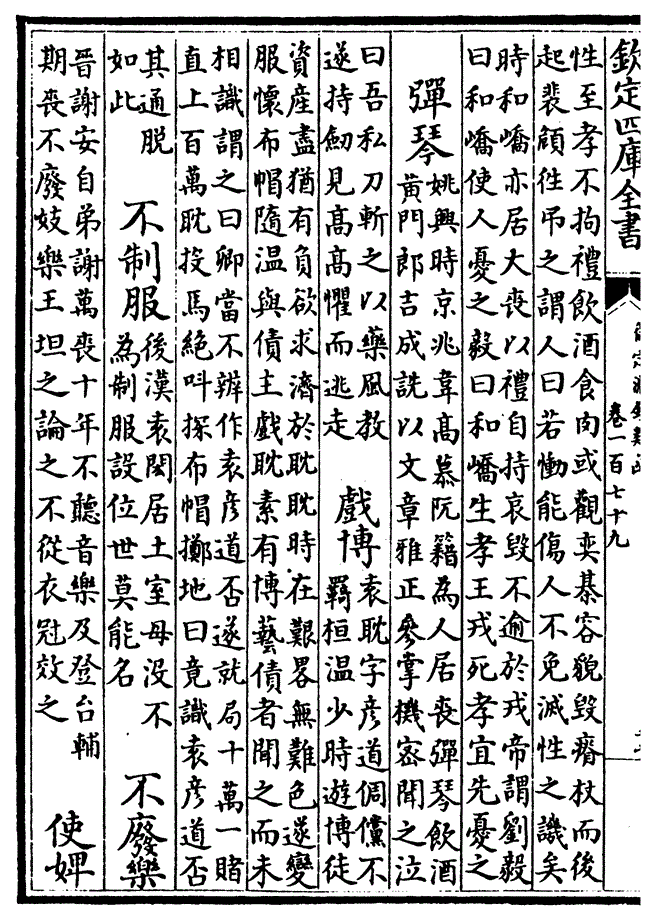 欽定四庫全書
卷一百七十九
性至孝不拘禮飲酒食肉或觀奕棊容貌毀瘠杖而後
起裴頠徃吊之謂人曰若慟能傷人不免滅性之譏矣
時和嶠亦居大喪以禮自持哀毀不逾於戎帝謂劉毅
曰和嶠使人憂之毅曰和嶠生孝王戎死孝宜先憂之
彈琴
姚興時京兆韋高慕阮籍為人居喪彈琴飲酒
黄門郎吉成詵以文章雅正叅掌機宻聞之泣
曰吾私刀斬之以藥風教
遂持劒見高高懼而逃走
戲博
袁耽字彦道倜儻不
羇桓温少時遊博徒
資産盡猶有負欲求濟於耽耽時在艱畧無難色遂變
服懷布帽隨温與債主戲耽素有博藝債者聞之而未
相識謂之曰卿當不辦作袁彦道否遂就局十萬一賭
直上百萬耽投馬絶呌探布帽擲地曰竟識袁彦道否
其通脱
如此
不制服
後漢袁閎居土室母没不
為制服設位世莫能名
不廢樂
晉謝安自弟謝萬喪十年不聽音樂及登台輔
期喪不廢妓樂王坦之論之不從衣冠效之
使婢